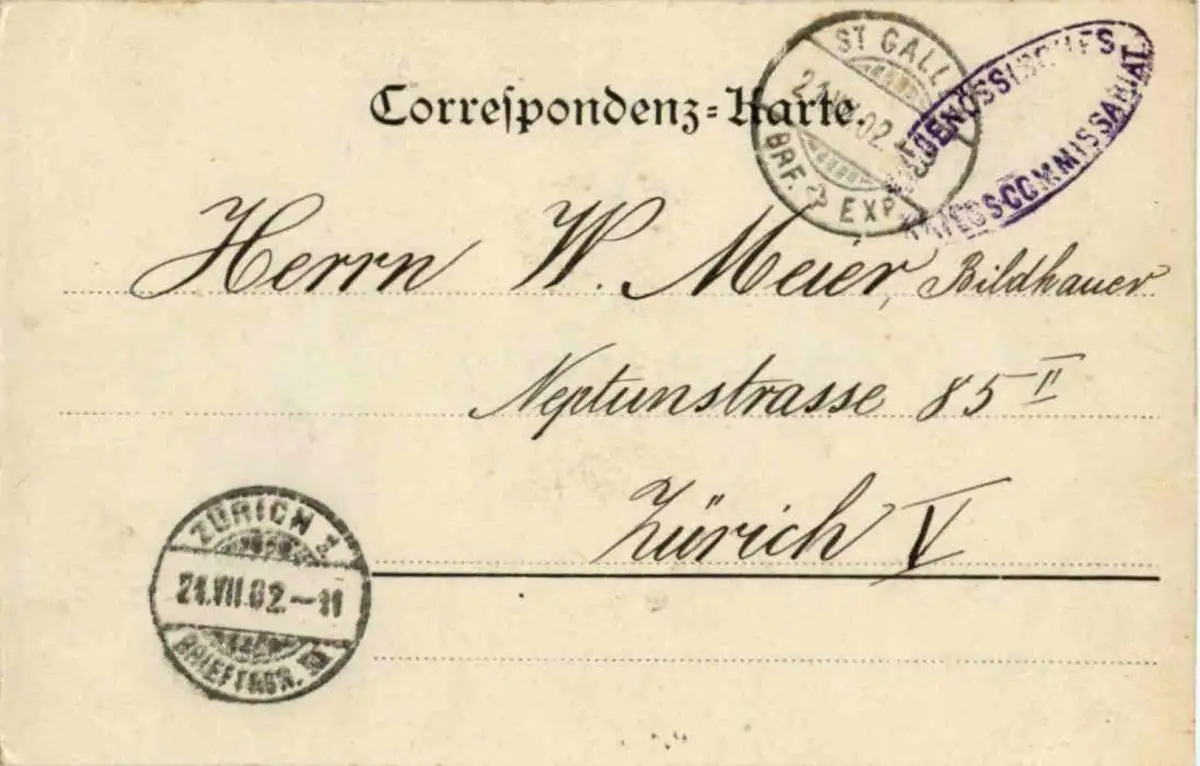 Correspondenz-Karte.
ST GALL
21.VII.02.
BRF. EXP
EIDGENÖSSISCHES
KRIEGSCOMMISSARIAT
Herrn W. Meier, Bildhauer
Neptunstrasse 85 II
Zürich V
ZÜRICH
21.VII.02.–11
BRIEFTRGR.